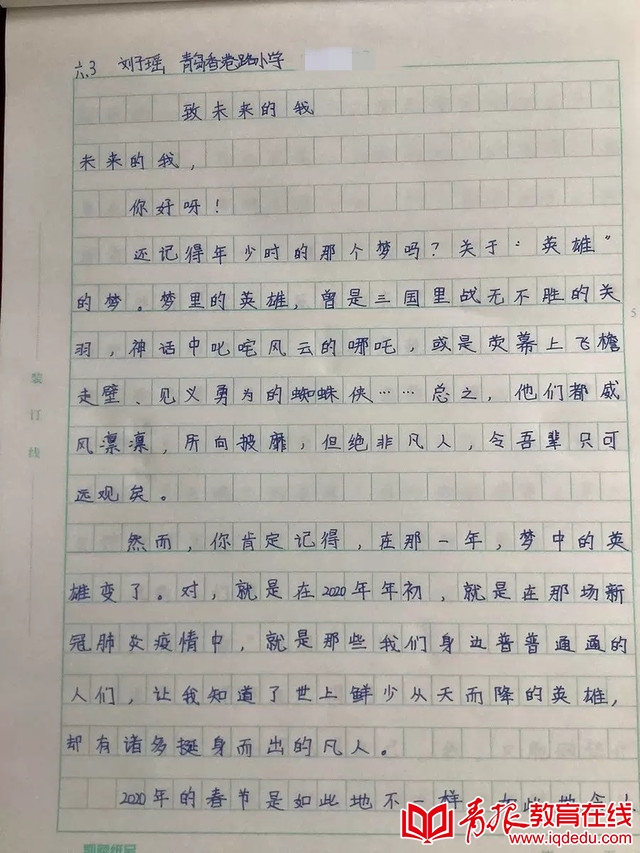 六.3 刘于瑶 青岛香港路小学
致未来的我
未来的我，
你好呀！
还记得年少时的那个梦吗？关于“英雄”
的梦。梦里的英雄，曾是三国里战无不胜的关
羽，神话中叱咤风云的哪吒，或是荧幕上飞檐
走壁、见义勇为的蜘蛛侠……总之，他们都威
风凛凛，所向披靡，但绝非凡人，令吾辈只可
远观矣。
然而，你肯定记得，在那一年，梦中的英
雄变了。对，就是在2020年年初，就是在那场新
冠肺炎疫情中，就是那些我们身边普普通通的
人们，让我知道了世上鲜少从天而降的英雄，
却有诸多挺身而出的凡人。
2020年的春节是如此地不一样，如此地令人
装订线
5
青报教育在线
www.iqdedu.com